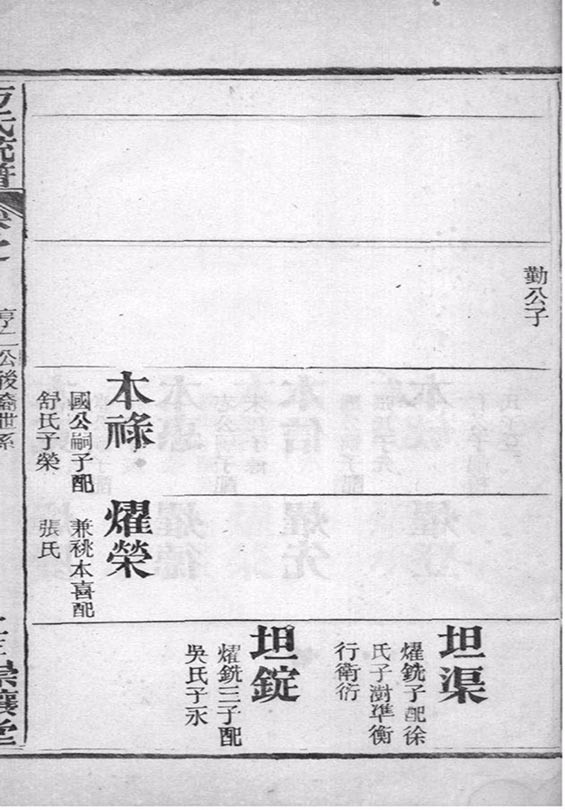 勤公子
坦渠
燿銑子配徐
氏子澍準衡
行衛衍
坦錠
燿銑三子配
吳氏子永
本祿
國公嗣子配
舒氏子榮
燿榮
兼祧本喜配
張氏
方氏統譜
公後裔世系